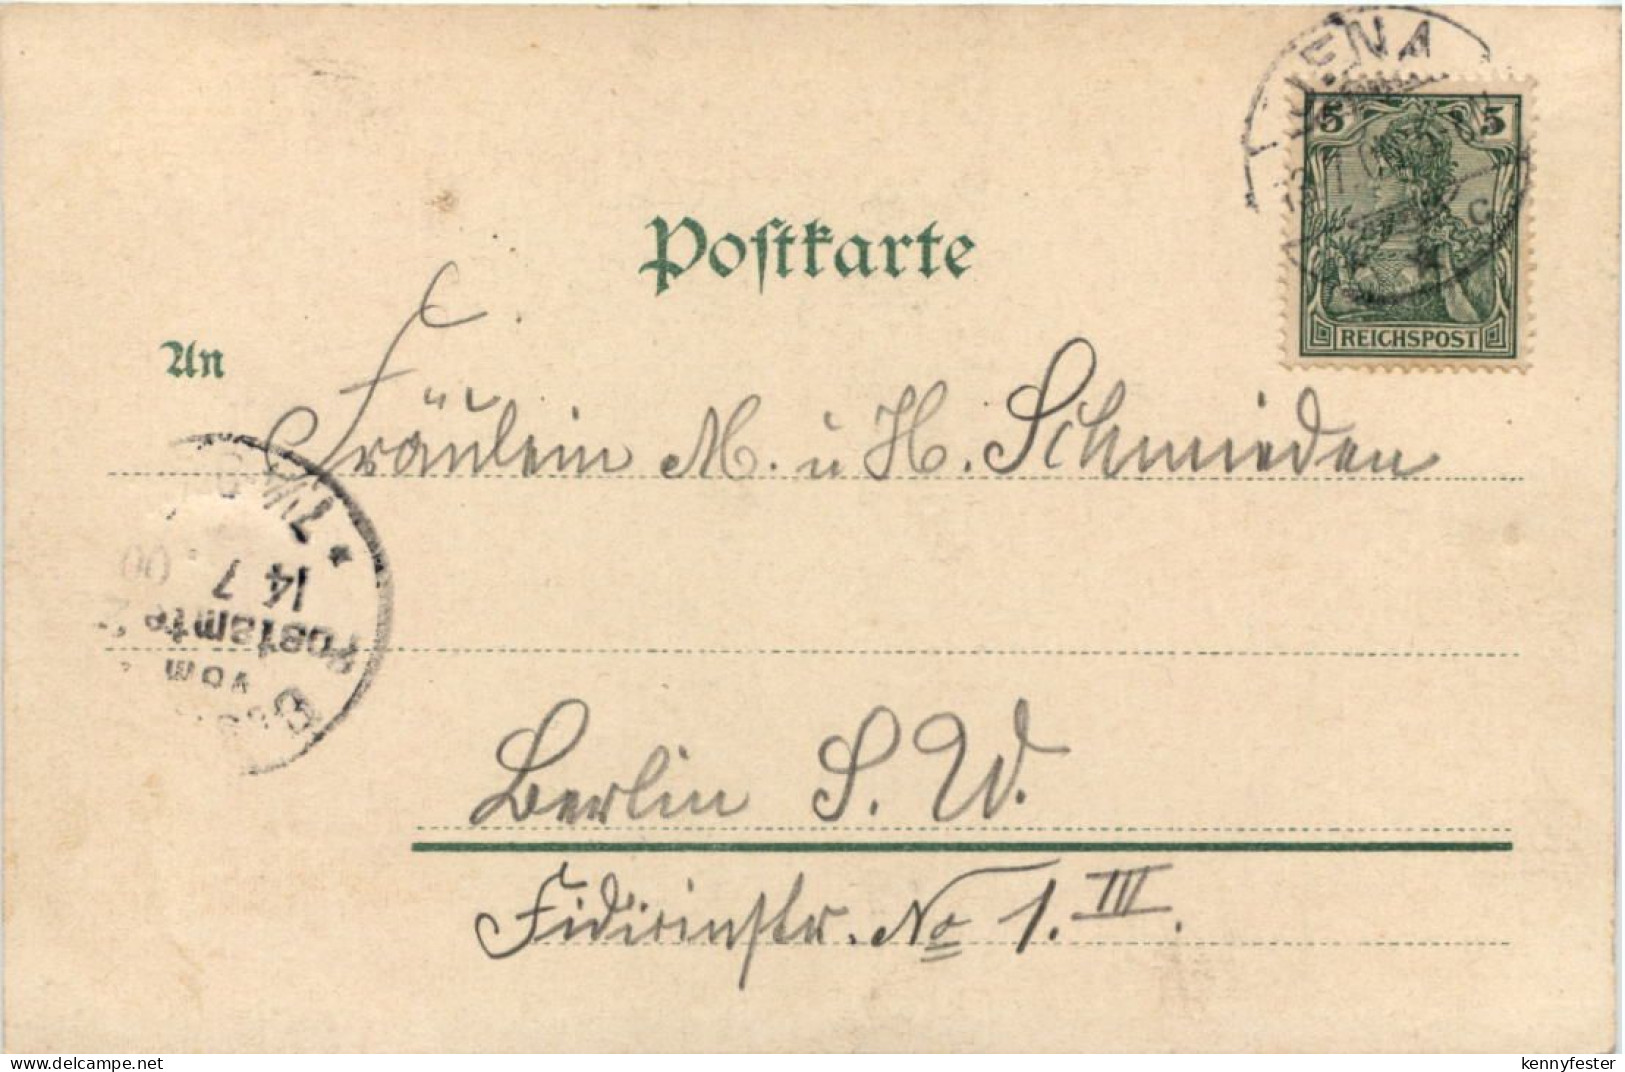 JENA
5 5
C
REICHSPOST
Postkarte
An
Fräulein M. u H. Schmieden
14 7 00
vom
Postamte
Berlin S. W.
No 1. III.
www.delcampe.net
kennyfester